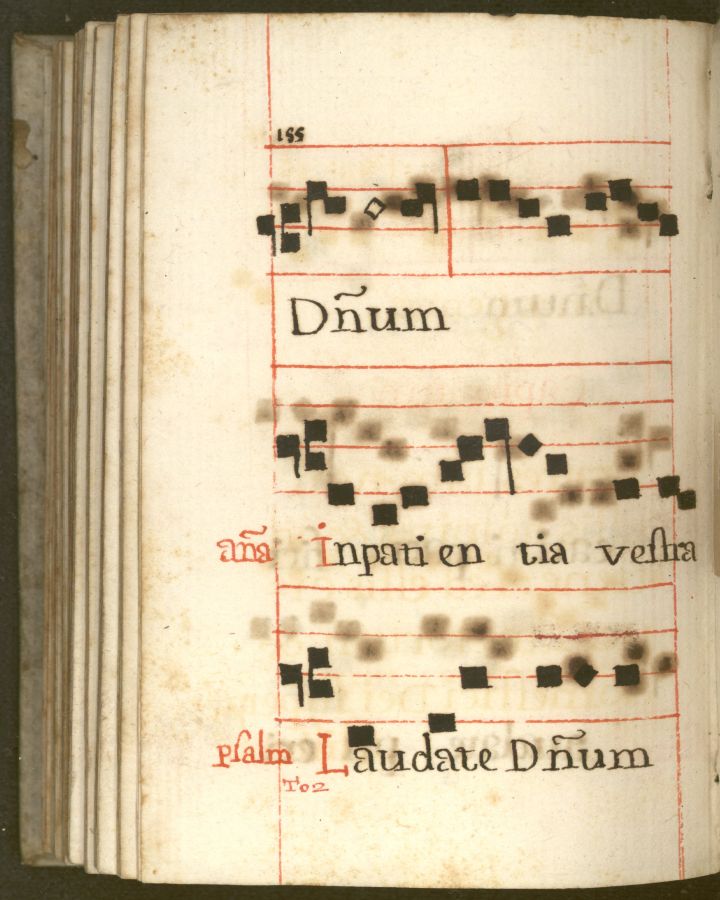 155
Dñum
aña Inpatien tia vestra
psalm Laudate Dñum
To2